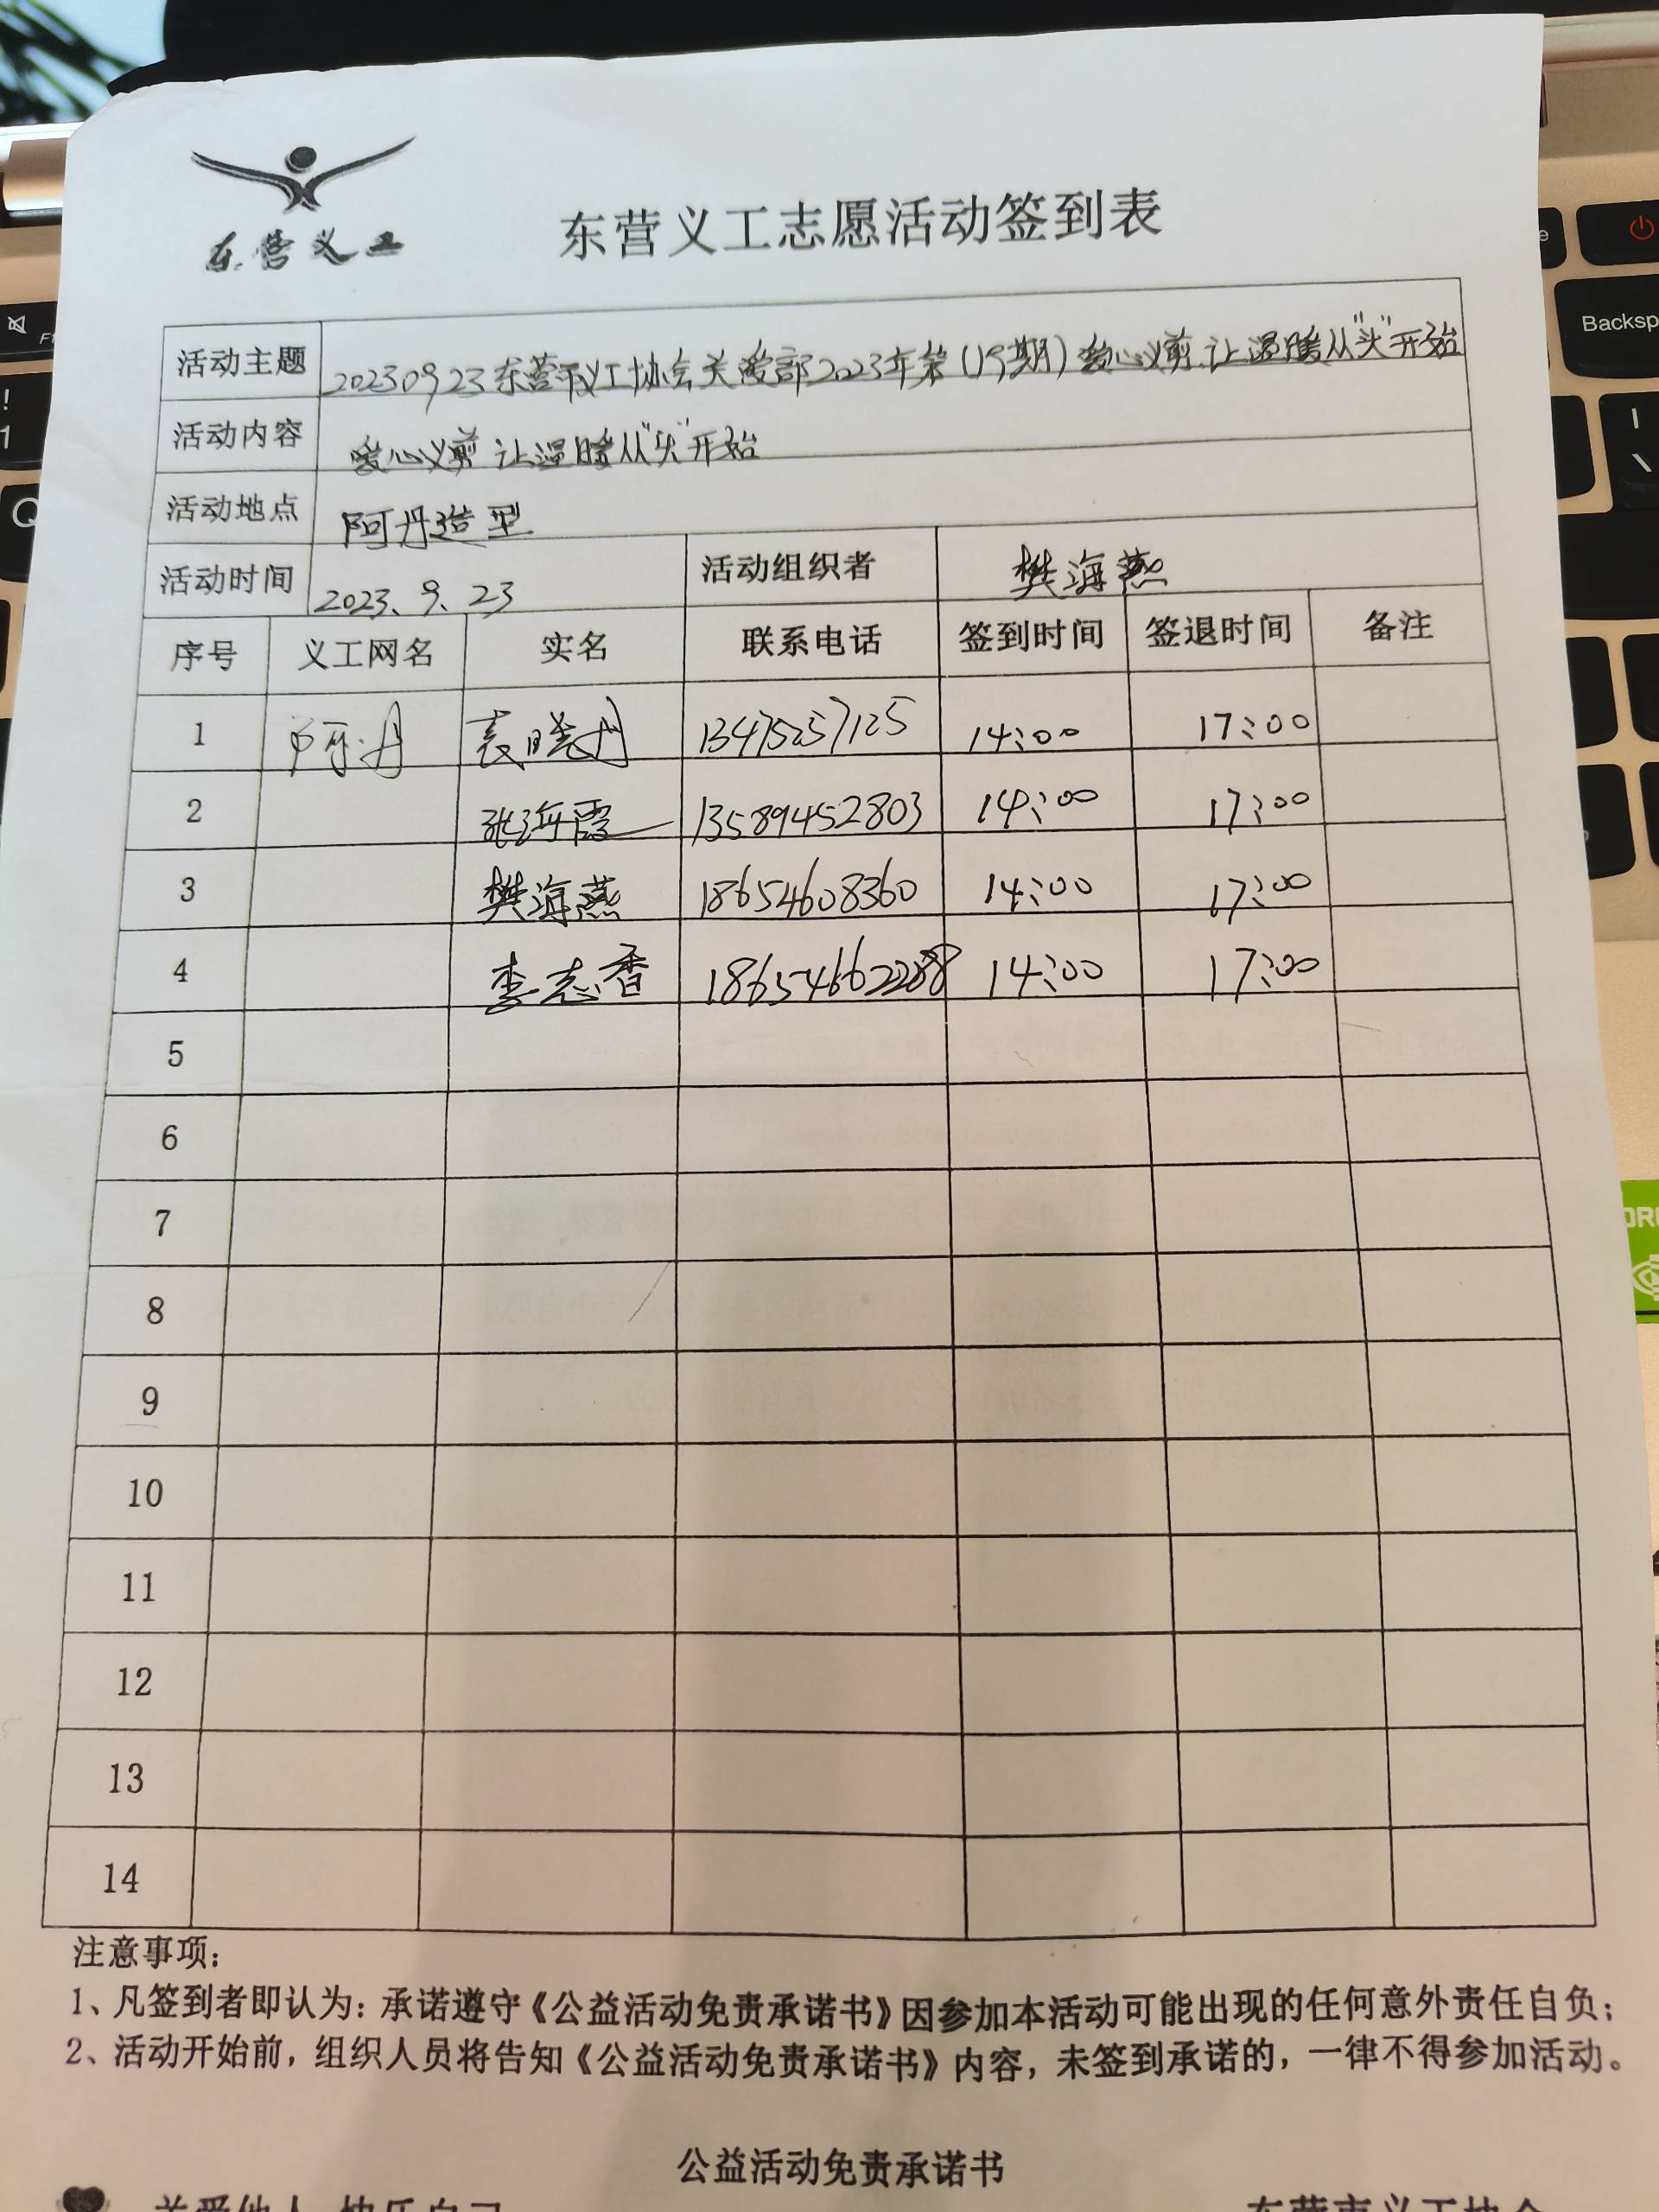 东营义工
东营义工志愿活动签到表
活动主题 20230923东营市义工协会关爱部2023年第(19期)爱心义剪 让温暖从“头”开始
活动内容 爱心义剪 让温暖从“头”开始
活动地点 阿丹造型
活动时间 2023、9、23 活动组织者 樊海燕
序号 义工网名 实名 联系电话 签到时间 签退时间 备注
1 阿丹 袁晓丹 13475257125 14:00 17:00
2 张海霞 13589452803 14:00 17:00
3 樊海燕 18654608360 14:00 17:00
4 李志香 18654662288 14:00 17:00
5
6
7
8
9
10
11
12
13
14
注意事项:
1、凡签到者即认为:承诺遵守《公益活动免责承诺书》因参加本活动可能出现的任何意外责任自负;
2、活动开始前,组织人员将告知《公益活动免责承诺书》内容,未签到承诺的,一律不得参加活动。
公益活动免责承诺书
关爱他人 快乐自己 东营市义工协会
Backsp